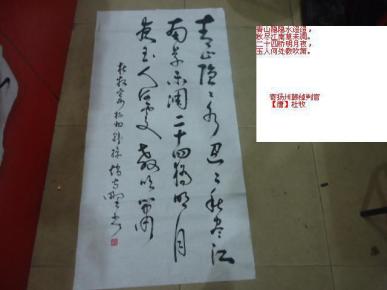 青山隐々水迢々秋尽江
南草未凋二十四桥明月
夜玉人何处教吹箫
青山隐隐水迢迢，
秋尽江南草未凋。
二十四桥明月夜，
玉人何处教吹箫。
寄扬州韩绰判官
【唐】杜牧